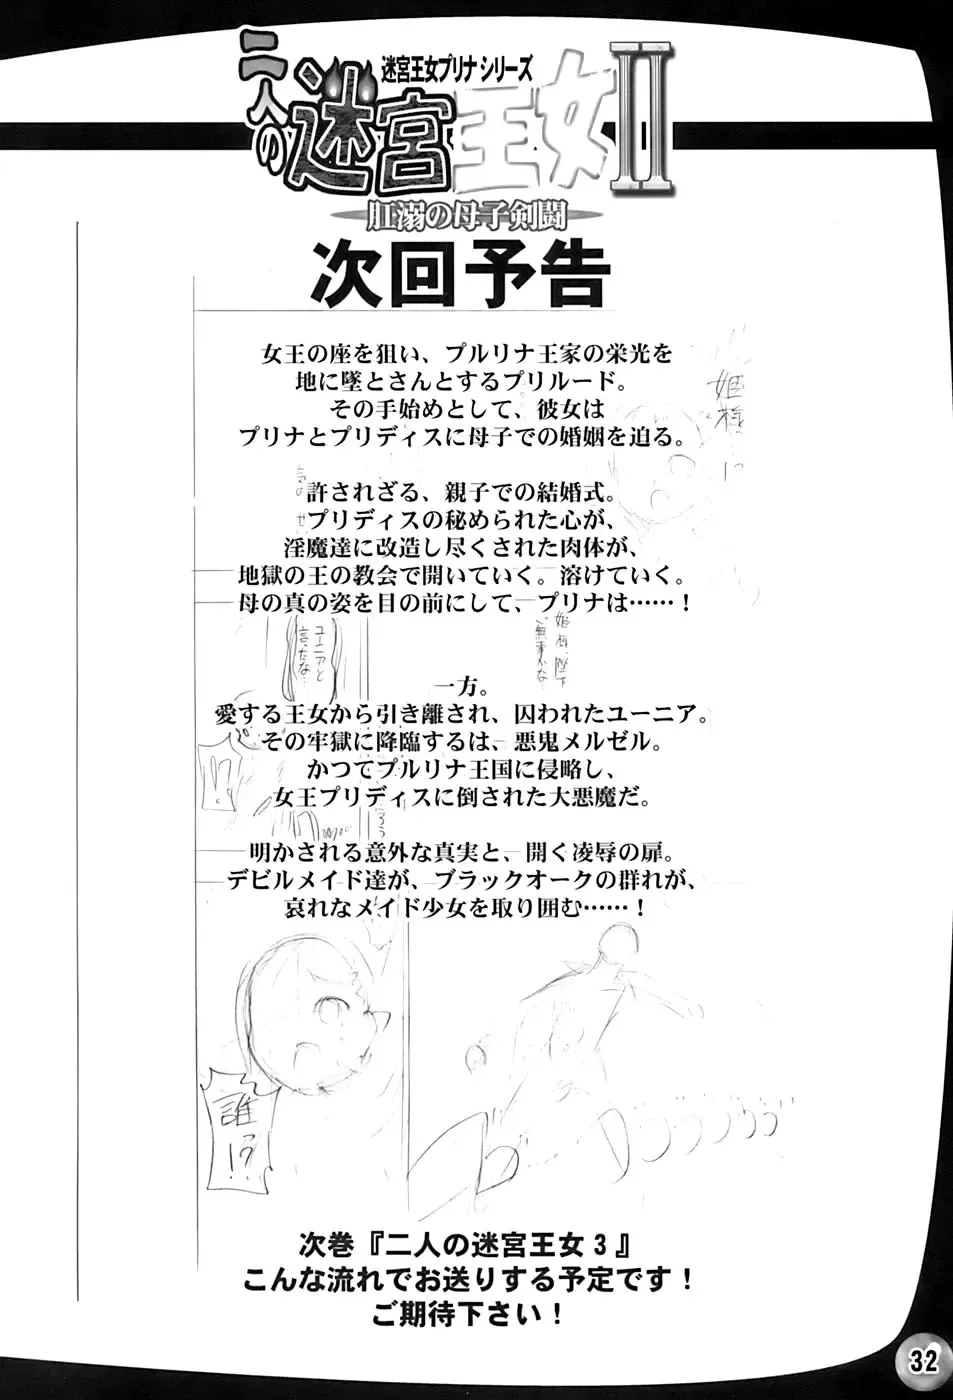 迷宮王女プリナシリーズ
二人の迷宮王女II
肛溺の母子剣闘
次回予告
女王の座を狙い、プルリナ王家の栄光を
地に墜とさんとするプリルード。
その手始めとして、彼女は
プリナとプリディスに母子での婚姻を迫る。
許されざる、親子での結婚式。
プリディスの秘められた心が、
淫魔達に改造し尽くされた肉体が、
地獄の王の教会で開いていく。溶けていく。
母の真の姿を目の前にして、プリナは……！
一方。
愛する王女から引き離され、囚われたユーニア。
その牢獄に降臨するは、悪鬼メルゼル。
かつてプルリナ王国に侵略し、
女王プリディスに倒された大悪魔だ。
明かされる意外な真実と、開く凌辱の扉。
デビルメイド達が、ブラックオークの群れが、
哀れなメイド少女を取り囲む……！
姫様!?
ユーニアと
言ったな…
姫様、陛下
ご無事かな…
誰!?
次巻『二人の迷宮王女３』
こんな流れでお送りする予定です！
ご期待下さい！
32